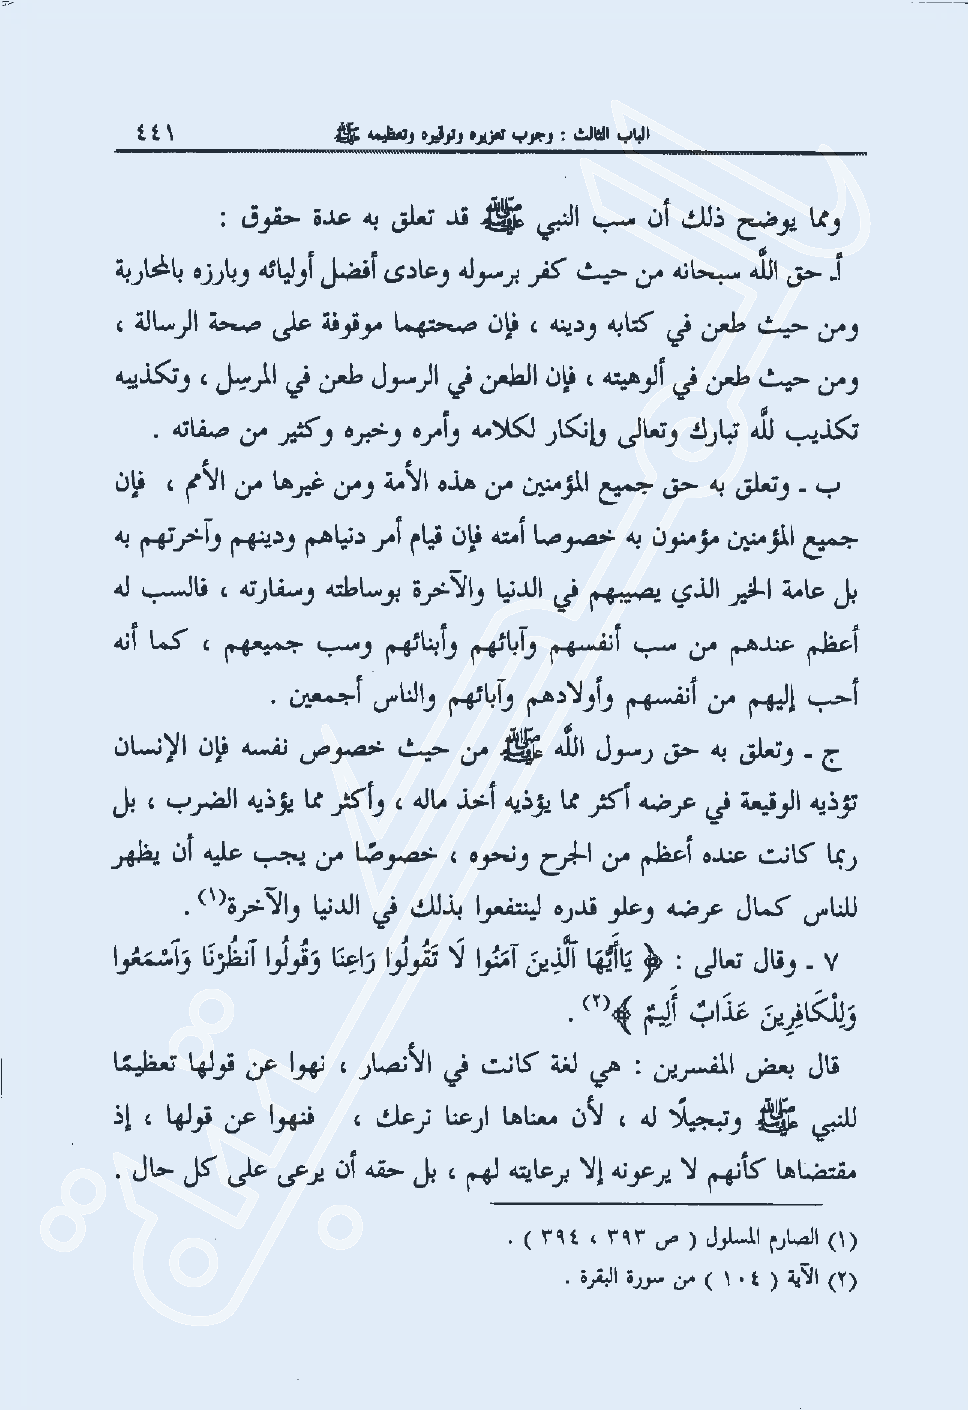 الباب الثالث : وجوب تعزيره وتوقيره وتعظيمه ﷺ ٤٤١
ومما يوضح ذلك أن سب النبي ﷺ قد تعلق به عدة حقوق :
أ ـ حق اللَّه سبحانه من حيث كفر برسوله وعادى أفضل أوليائه وبارزه بالمحاربة
ومن حيث طعن في كتابه ودينه ، فإن صحتهما موقوفة على صحة الرسالة ،
ومن حيث طعن في ألوهيته ، فإن الطعن في الرسول طعن في المرسِل ، وتكذيبه
تكذيب للَّه تبارك وتعالى وإنكار لكلامه وأمره وخبره وكثير من صفاته .
ب ـ وتعلق به حق جميع المؤمنين من هذه الأمة ومن غيرها من الأمم ، فإن
جميع المؤمنين مؤمنون به خصوصا أمته فإن قيام أمر دنياهم ودينهم وآخرتهم به
بل عامة الخير الذي يصيبهم في الدنيا والآخرة بوساطته وسفارته ، فالسب له
أعظم عندهم من سب أنفسهم وآبائهم وأبنائهم وسب جميعهم ، كما أنه
أحب إليهم من أنفسهم وأولادهم وآبائهم والناس أجمعين .
ج ـ وتعلق به حق رسول اللَّه ﷺ من حيث خصوص نفسه فإن الإنسان
تؤذيه الوقيعة في عرضه أكثر مما يؤذيه أخذ ماله ، وأكثر مما يؤذيه الضرب ، بل
ربما كانت عنده أعظم من الجرح ونحوه ، خصوصًا من يجب عليه أن يظهر
للناس كمال عرضه وعلو قدره لينتفعوا بذلك في الدنيا والآخرة(١) .
٧ ـ وقال تعالى : ﴿ يَاأَيُّهَا ٱلَّذِينَ آمَنُوا لَا تَقُولُوا رَاعِنَا وَقُولُوا ٱنظُرْنَا وَٱسْمَعُوا
وَلِلْكَافِرِينَ عَذَابٌ أَلِيمٌ ﴾(٢) .
قال بعض المفسرين : هي لغة كانت في الأنصار ، نهوا عن قولها تعظيمًا
للنبي ﷺ وتبجيلًا له ، لأن معناها ارعنا نرعك ، فنهوا عن قولها ، إذ
مقتضاها كأنهم لا يرعونه إلا برعايته لهم ، بل حقه أن يرعى على كل حال .
(١) الصارم المسلول ( ص ٣٩٣ ، ٣٩٤ ) .
(٢) الآية ( ١٠٤ ) من سورة البقرة .